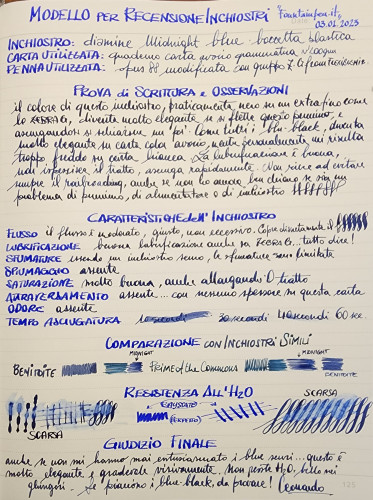 MODELLO PER RECENSIONE INCHIOSTRI "Fountainpen.it"
03.01.2023
INCHIOSTRO: diamine Midnight blue boccetta plastica
CARTA UTILIZZATA: quaderno carta avorio grammatura 100gsm
PENNA UTILIZZATA: opus 88 modificata con gruppo
PROVA DI SCRITTURA E OSSERVAZIONI
il colore di questo inchiostro, praticamente nero su un extrafino come
lo ZEBRA G, diventa molto elegante se si flette questo pennino, e
asciugandosi si schiarisce un po'. Come tutti i blu-black, diventa
molto elegante su carta color avorio, mentre personalmente mi risulta
troppo freddo su carta bianca. La lubrificazione è buona,
non impreciso il tratto, asciuga rapidamente. Non riesce ad evitare
sempre il railroading, anche se non ho ancora ben chiaro se sia un
problema di pennino, di alimentatore o di inchiostro
CARATTERISTICHE DELL'INCHIOSTRO
FLUSSO il flusso è moderato, giusto, non eccessivo. Copre discretamente il
LUBRIFICAZIONE buona lubrificazione anche su ZEBRA G.. tutto dire!
SFUMATURE essendo un inchiostro scuro, le sfumature sono limitate
SPIUMAGGIO assente
SATURAZIONE molto buona, anche allargando il tratto
ATTRAVERSAMENTO assente... con nessuno spessore su questa carta
ODORE assente
TEMPO ASCIUGATURA 10 secondi 30 secondi 40 secondi 60 sec.
COMPARAZIONE CON INCHIOSTRI SIMILI
MIDNIGHT MIDNIGHT
BENITOITE Prime of the Commons BENITOITE
RESISTENZA ALL'H2O
SCARSA
SCARSA
GIUDIZIO FINALE
anche se non mi hanno mai entusiasmato i blue scuri... questo è
molto elegante e gradevole visivamente. Non regge H2O, bello nei
ghirigori. Se piacciono i blue-black, da provare! Leonardo